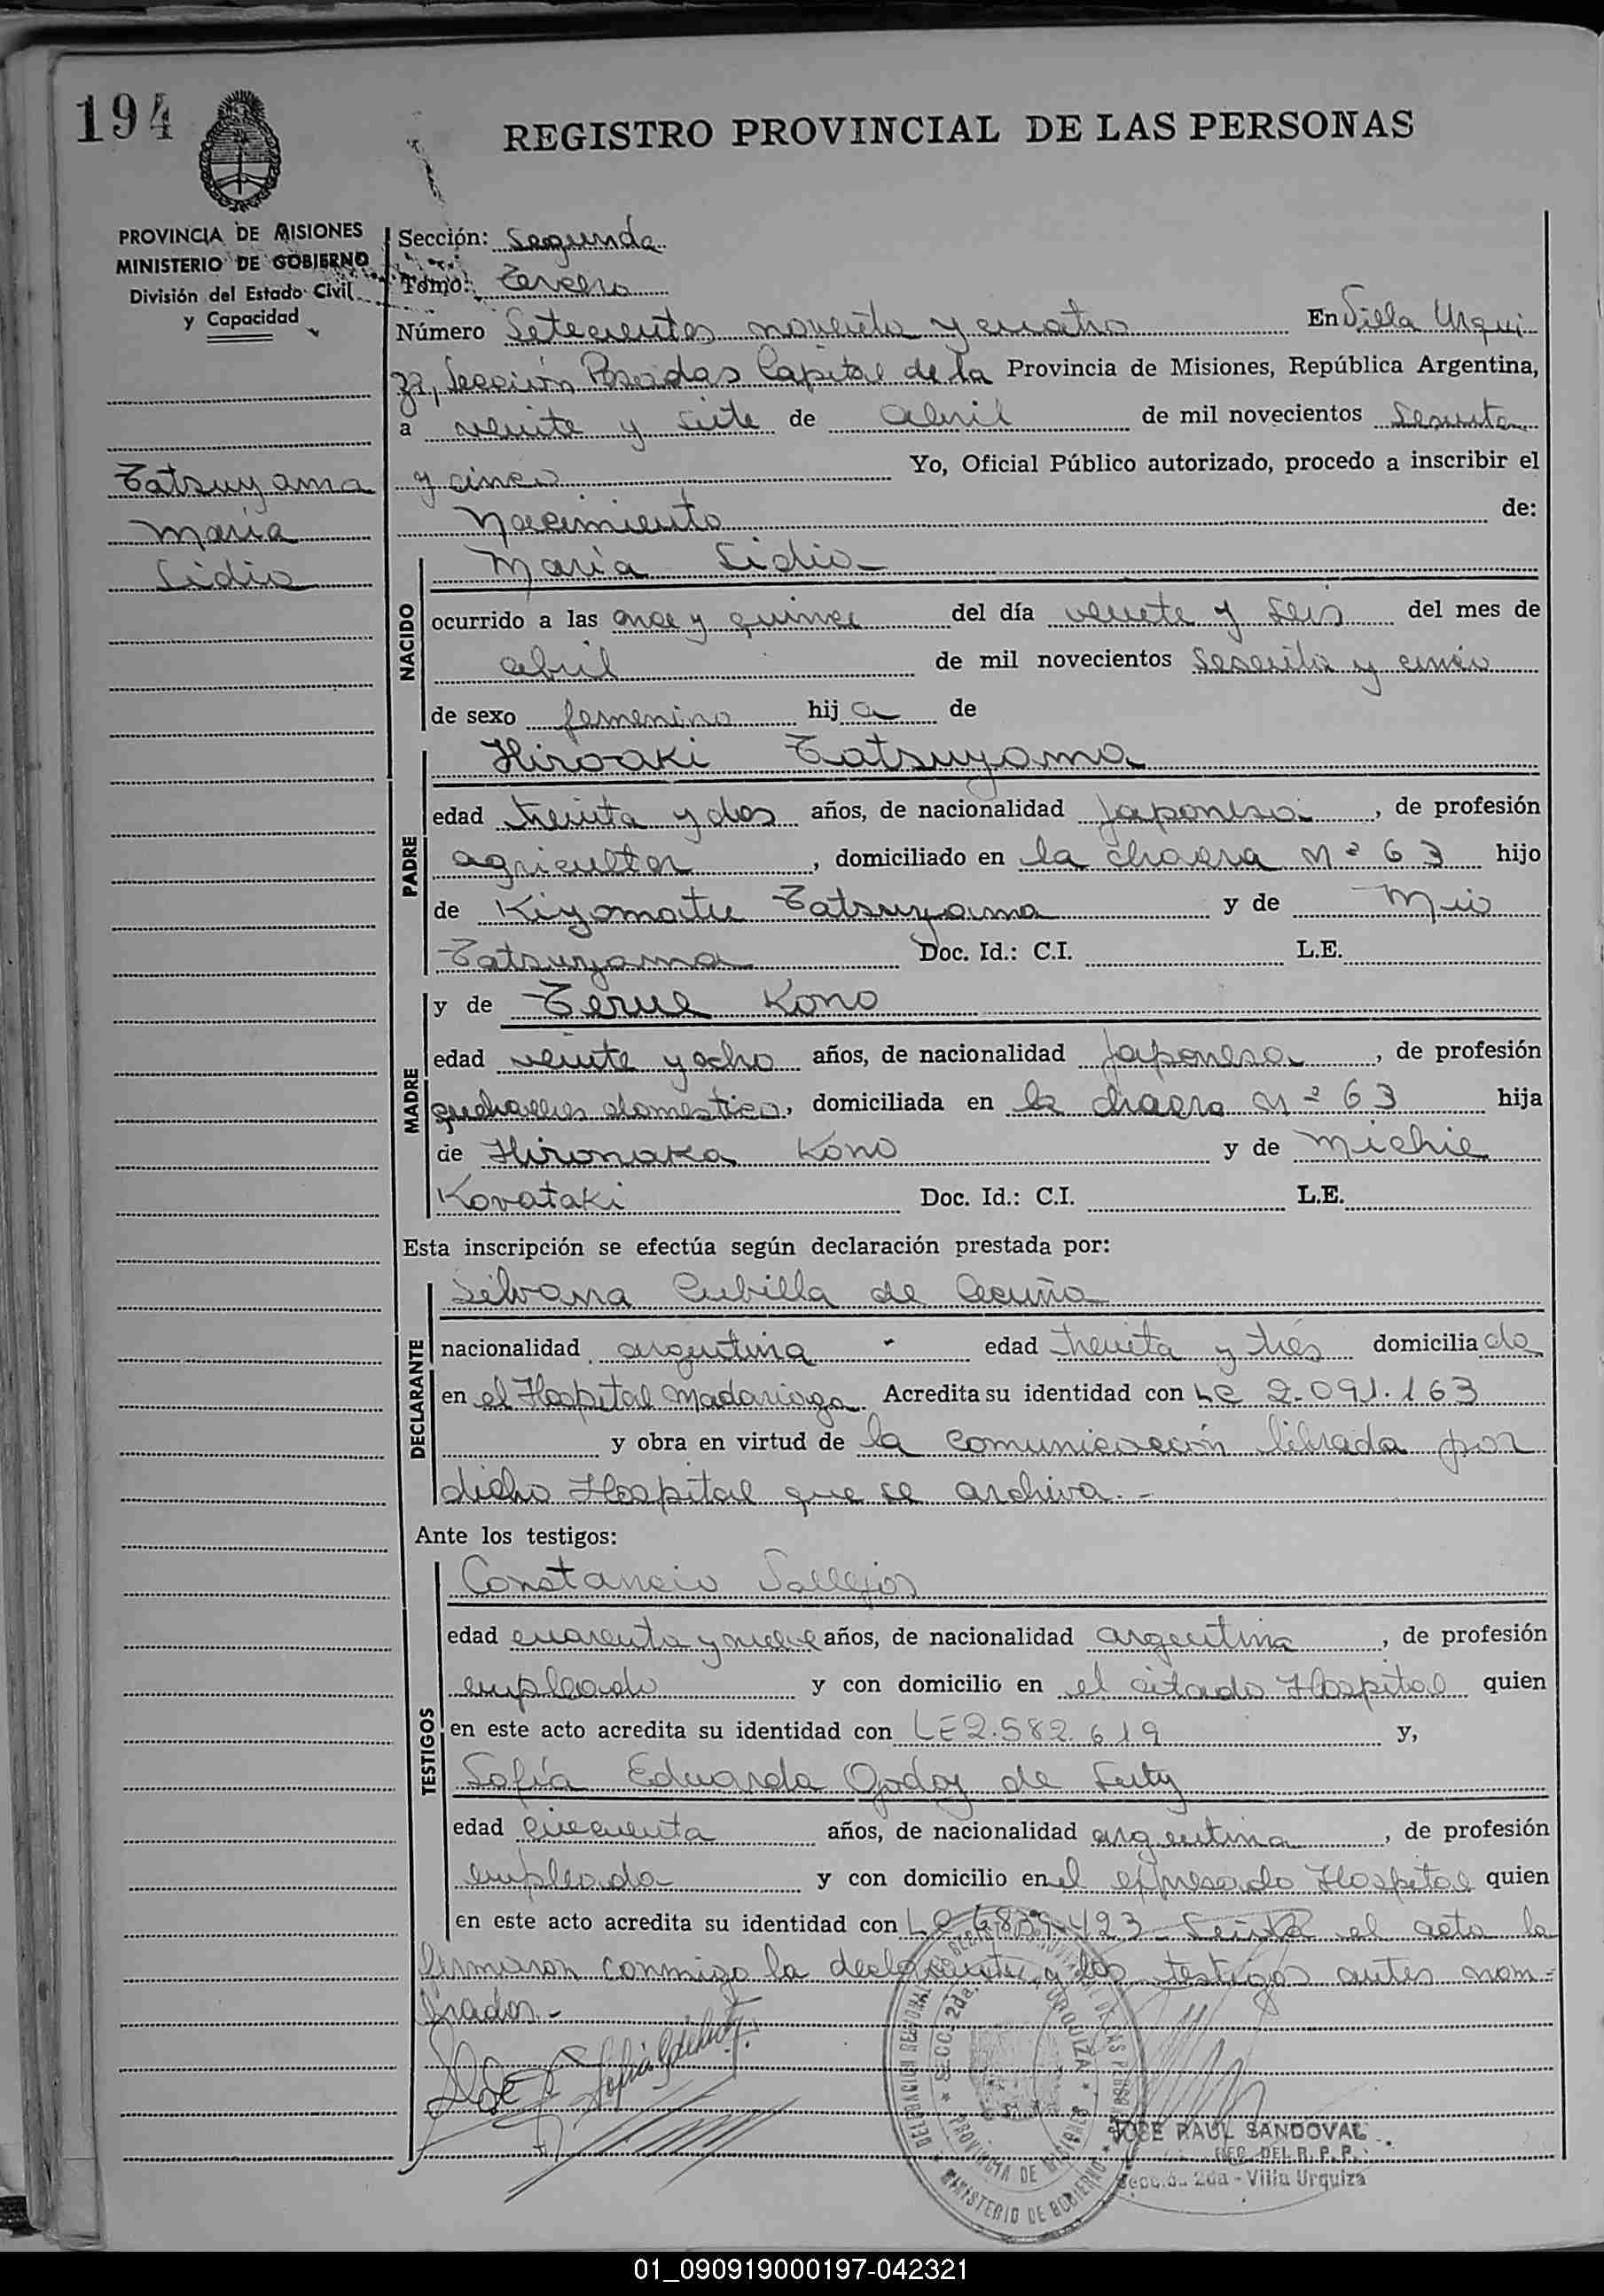 194
REGISTRO PROVINCIAL DE LAS PERSONAS
PROVINCIA DE MISIONES
MINISTERIO DE GOBIERNO
División del Estado Civil
y Capacidad
Tatsuyama
María
Lidia
Sección: Segunda
Tomo: Tercero
Número Setecientos noventa y cuatro En Villa Urqui
za, Sección Posadas Capital de la Provincia de Misiones, República Argentina,
a veinte y siete de abril de mil novecientos sesenta
y cinco Yo, Oficial Público autorizado, procedo a inscribir el
Nacimiento de:
NACIDO
María Lidia
ocurrido a las once y quince del día veinte y seis del mes de
abril de mil novecientos sesenta y cinco
de sexo femenino hija de
PADRE
Hiroaki Tatsuyama
edad treinta y dos años, de nacionalidad japonesa, de profesión
agricultor, domiciliado en la chacra nº 63 hijo
de Kiyomatu Tatsuyama y de Mio
Tatsuyama Doc. Id.: C.I. L.E.
MADRE
y de Terue Kono
edad veinte y ocho años, de nacionalidad japonesa, de profesión
quehaceres domestico, domiciliada en la chacra nº 63 hija
de Hironaka Kono y de Michie
Kovataki Doc. Id.: C.I. L.E.
Esta inscripción se efectúa según declaración prestada por:
DECLARANTE
Silvana Cubilla de Acuña
nacionalidad argentina edad treinta y tres domiciliada
en el Hospital Madariaga. Acredita su identidad con LC 2.091.163
y obra en virtud de la comunicación librada por
dicho Hospital que se archiva.-
Ante los testigos:
TESTIGOS
Constancio Vallejos
edad cuarenta y nueve años, de nacionalidad argentina, de profesión
empleado y con domicilio en el citado Hospital quien
en este acto acredita su identidad con LE 2.582.619 y,
Sofía Eduarda Godoy de
edad cincuenta años, de nacionalidad argentina, de profesión
empleada y con domicilio en el expresado Hospital quien
en este acto acredita su identidad con LC 423 el acto la
firmaron conmigo la declarante y los testigos antes nom-
brados.-
DELEGACION REGIONAL
SECC. 2da. URQUIZA
PROVINCIA DE MISIONES
MINISTERIO DE GOBIERNO
JOSE RAUL SANDOVAL
DEL R. P. P.
Secc. 2da - Villa Urquiza
01_090919000197-042321